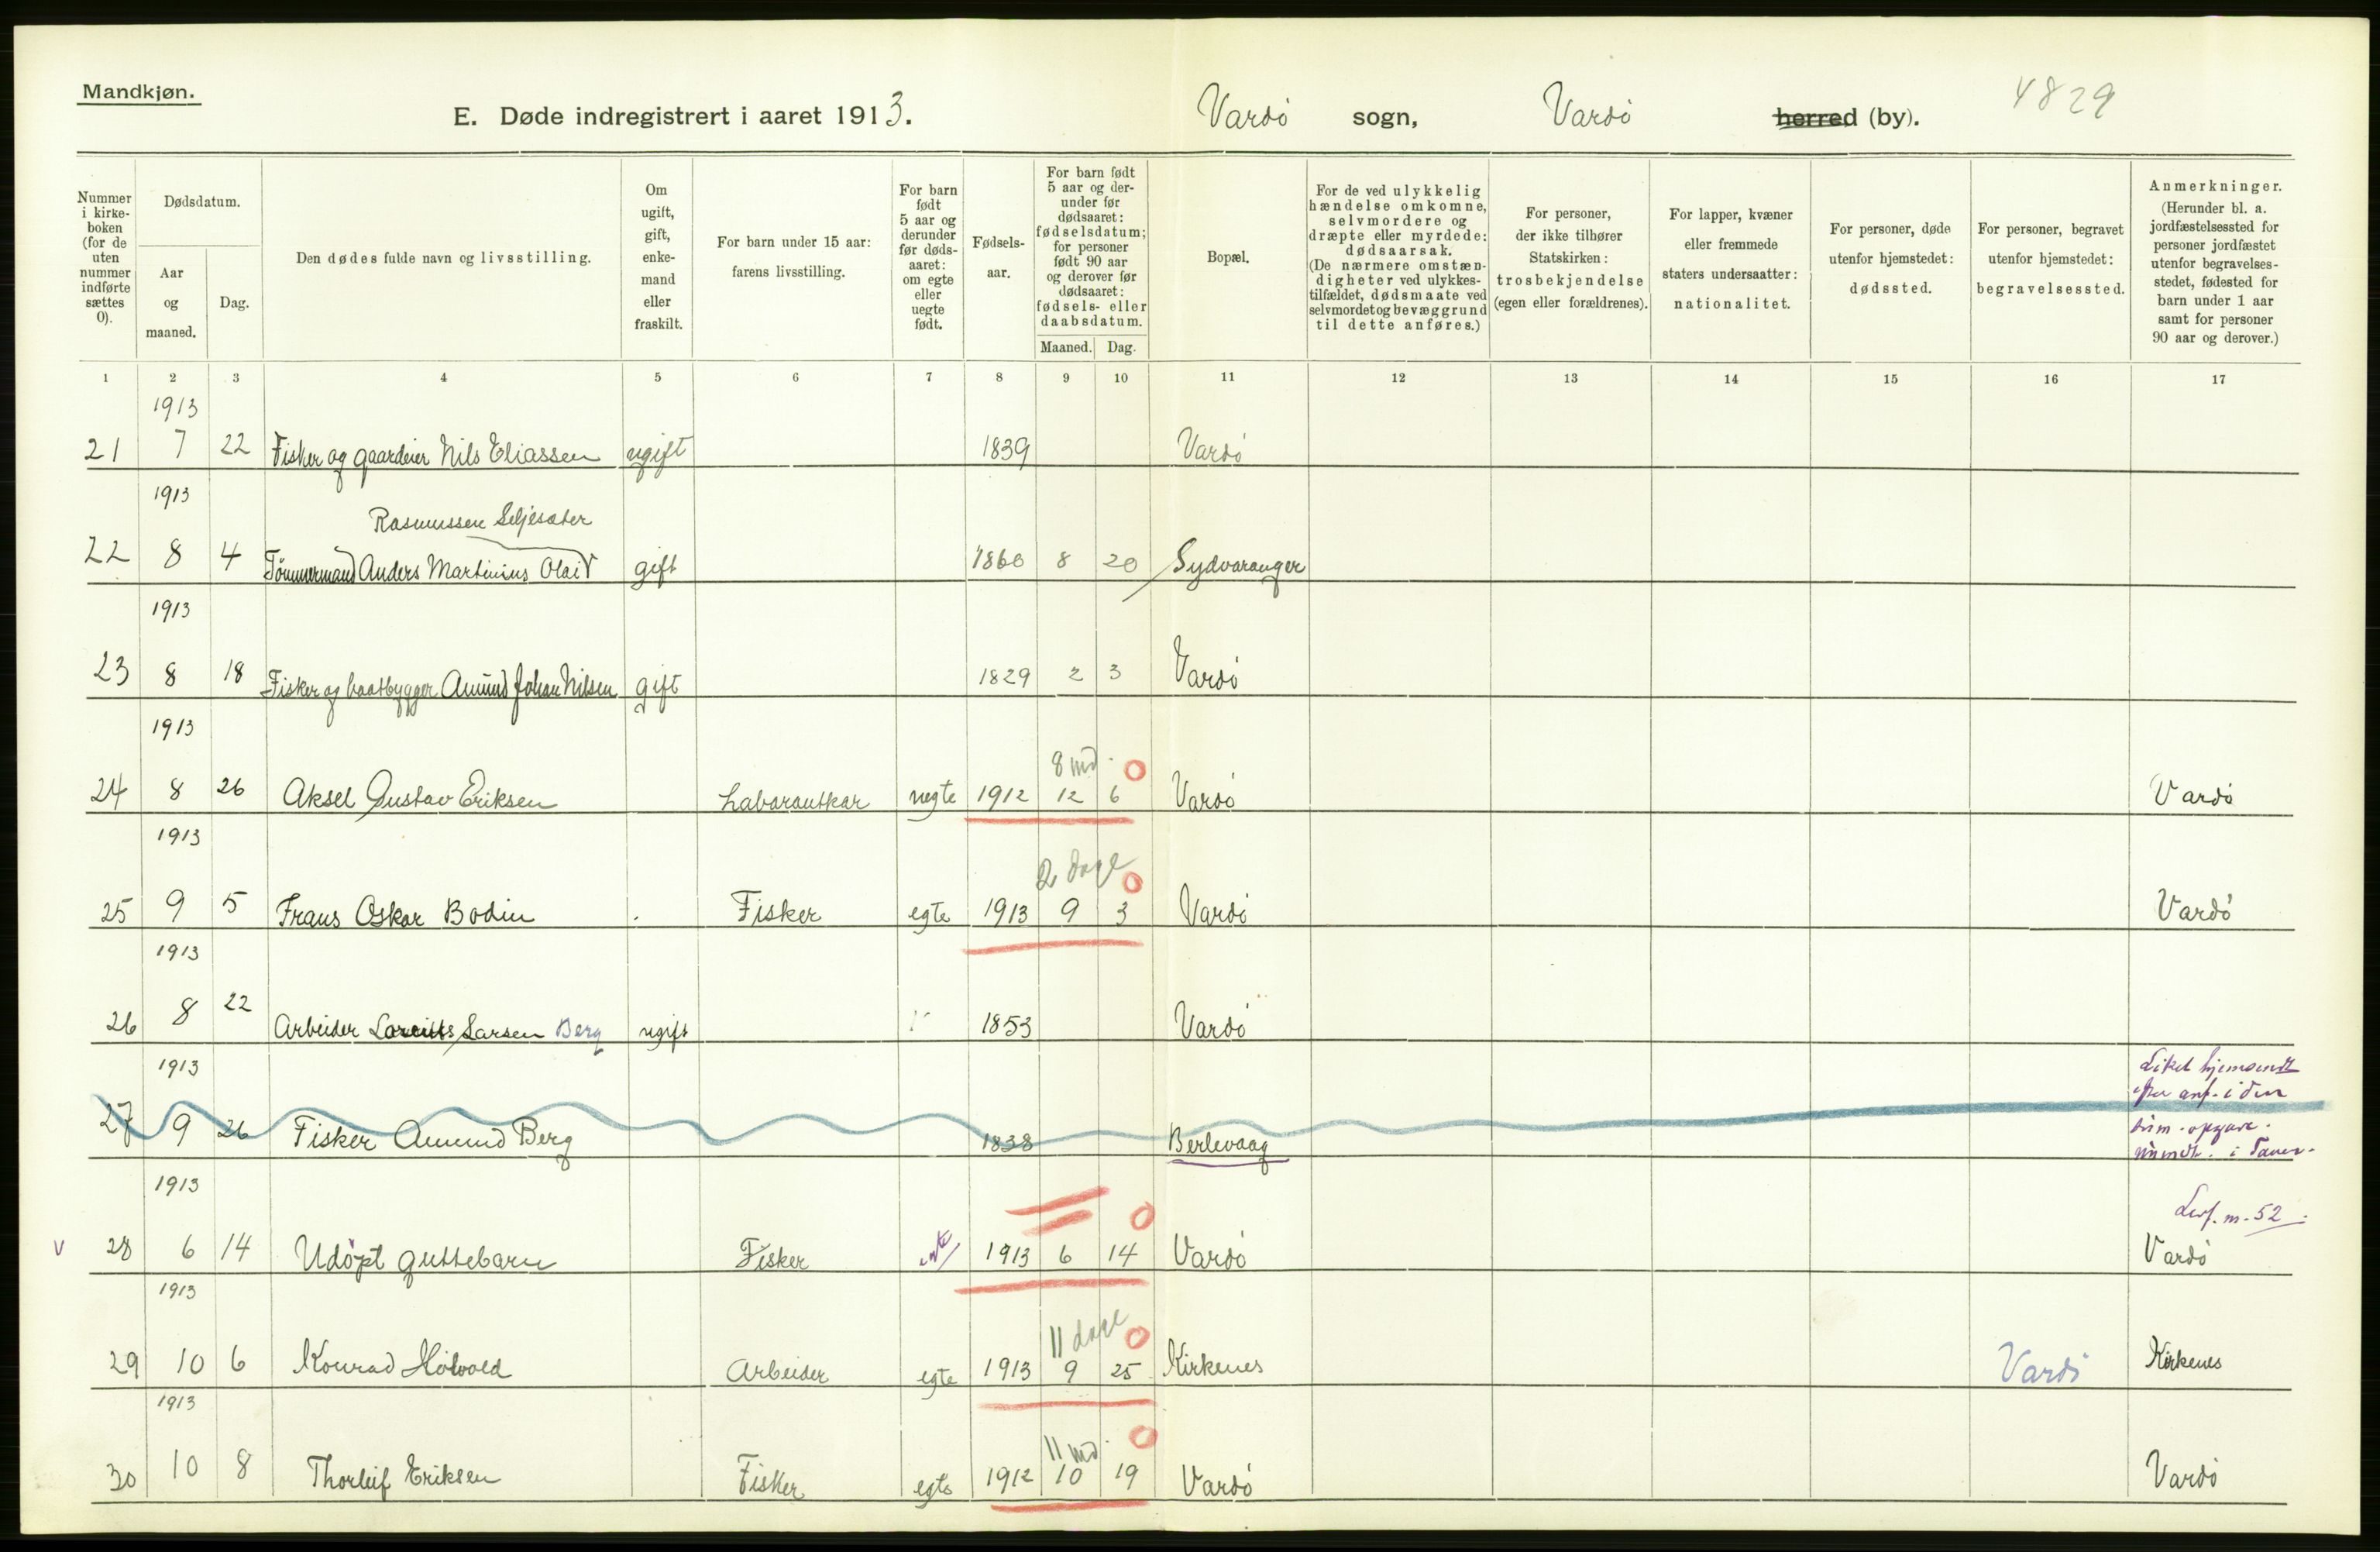 Mandkjøn.
E. Døde indregistrert i aaret 1913. Vardö sogn, Vardö herred (by). 4829
Nummer i kirkeboken (for de uten nummer indførte sættes 0).
Dødsdatum.
Aar og maaned.
Dag.
Den dødes fulde navn og livsstilling.
Om ugift, gift, enkemand eller fraskilt.
For barn under 15 aar: farens livsstilling.
For barn født 5 aar og derunder før dødsaaret: om egte eller uegte født.
Fødselsaar.
For barn født 5 aar og derunder før dødsaaret: fødselsdatum; for personer født 90 aar og derover før dødsaaret: fødsels- eller daabsdatum.
Maaned. Dag.
Bopæl.
For de ved ulykkelig hændelse omkomne, selvmordere og dræpte eller myrdede: dødsaarsak. (De nærmere omstændigheter ved ulykkestilfældet, dødsmaate ved selvmordet og bevæggrund til dette anføres.)
For personer, der ikke tilhører Statskirken: trosbekjendelse (egen eller forældrenes).
For lapper, kvæner eller fremmede staters undersaatter: nationalitet.
For personer, døde utenfor hjemstedet: dødssted.
For personer, begravet utenfor hjemstedet: begravelsessted.
Anmerkninger. (Herunder bl. a. jordfæstelsessted for personer jordfæstet utenfor begravelsesstedet, fødested for barn under 1 aar samt for personer 90 aar og derover.)
1 2 3 4 5 6 7 8 9 10 11 12 13 14 15 16 17
1913
21 7 22 Fisker og gaardeier Nils Eliassen ugift 1839 Vardö
1913
Rasmussen Seljesæter
22 8 4 Tömmermand Anders Martinius Olai gift 1860 8 20 Sydvaranger
1913
23 8 18 Fisker og baatbygger Amund Johan Nilsen gift 1829 2 3 Vardö
1913
8 md. 0
24 8 26 Aksel Gustav Eriksen Labarantkar uegte 1912 12 6 Vardö Vardö
1913
2 dage 0
25 9 5 Frans Oskar Bodin Fisker egte 1913 9 3 Vardö Vardö
1913
26 8 22 Arbeider Lorents Larsen Berg ugift 1853 Vardö
1913
Liket hjemsendt
27 9 26 Fisker Amund Berg 1838 Berlevaag
1913
0
v 28 6 14 Udöpt guttebarn Fisker 1913 6 14 Vardö Vardö
1913
11 dage 0
29 10 6 Konrad Holvold Arbeider egte 1913 9 25 Kirkenes Vardö Kirkenes
1913
11 md. 0
30 10 8 Thorleif Eriksen Fisker egte 1912 10 19 Vardö Vardö